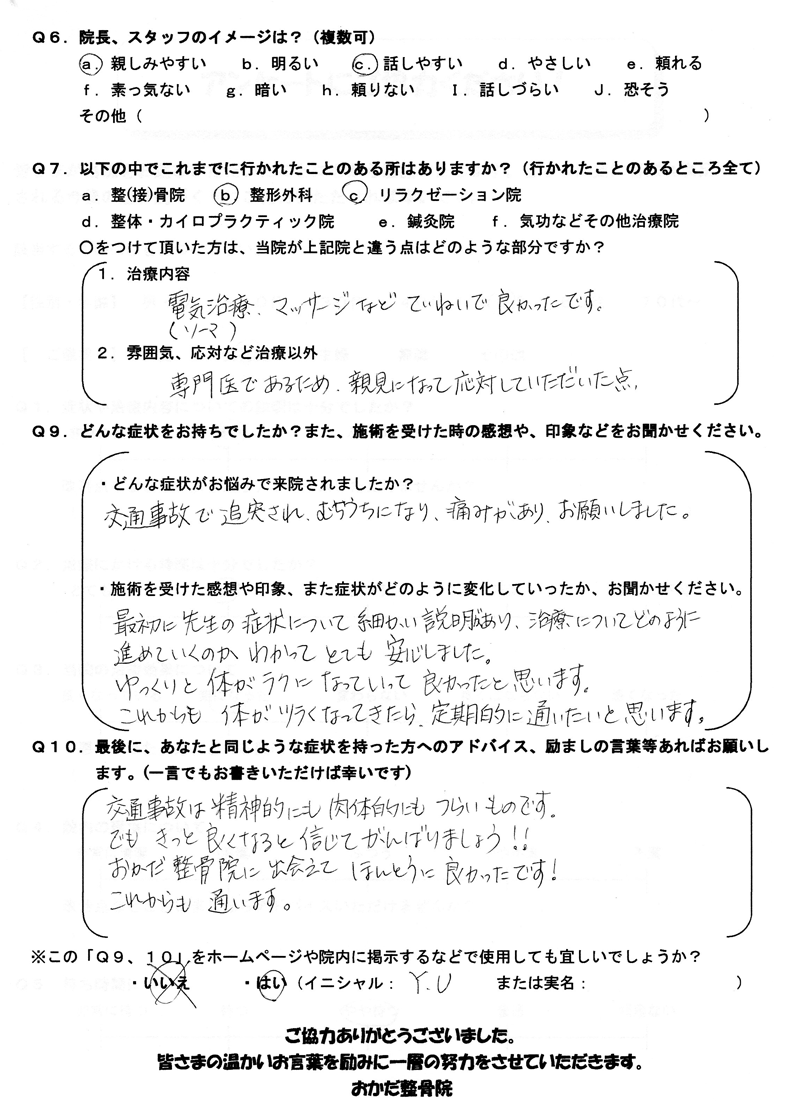 Q6．院長、スタッフのイメージは？（複数可）
a．親しみやすい　b．明るい　c．話しやすい　d．やさしい　e．頼れる
f．素っ気ない　g．暗い　h．頼りない　I．話しづらい　J．恐そう
その他（　　　）
Q7．以下の中でこれまでに行かれたことのある所はありますか？（行かれたことのあるところ全て）
a．整(接)骨院　b．整形外科　c．リラクゼーション院
d．整体・カイロプラクティック院　e．鍼灸院　f．気功などその他治療院
〇をつけて頂いた方は、当院が上記院と違う点はどのような部分ですか？
1．治療内容
電気治療、マッサージなど ていねいで 良かったです。
（ソーマ）
2．雰囲気、応対など治療以外
専門医であるため、親見になって応対していただいた点。
Q9．どんな症状をお持ちでしたか？また、施術を受けた時の感想や、印象などをお聞かせください。
・どんな症状がお悩みで来院されましたか？
交通事故で 追突され、むちうちになり、痛みがあり、お願いしました。
・施術を受けた感想や印象、また症状がどのように変化していったか、お聞かせください。
最初に 先生の 症状について 細かい 説明があり、治療についてどのように
進めていくのか わかって とても 安心しました。
ゆっくりと 体が ラクに なっていって 良かったと思います。
これからも 体が ツラくなってきたら、定期的に通いたいと思います。
Q10．最後に、あなたと同じような症状を持った方へのアドバイス、励ましの言葉等あればお願いし
ます。(一言でもお書きいただけば幸いです)
交通事故は 精神的にも 肉体的にも つらい ものです。
でも きっと 良くなると 信じて がんばりましょう!!
おかだ 整骨院に 出会えて ほんとうに 良かったです!
これからも 通います。
※この「Q9、10」をホームページや院内に掲示するなどで使用しても宜しいでしょうか？
・いいえ　・はい（イニシャル： Y.U　または実名：　　　）
ご協力ありがとうございました。
皆さまの温かいお言葉を励みに一層の努力をさせていただきます。
おかだ整骨院